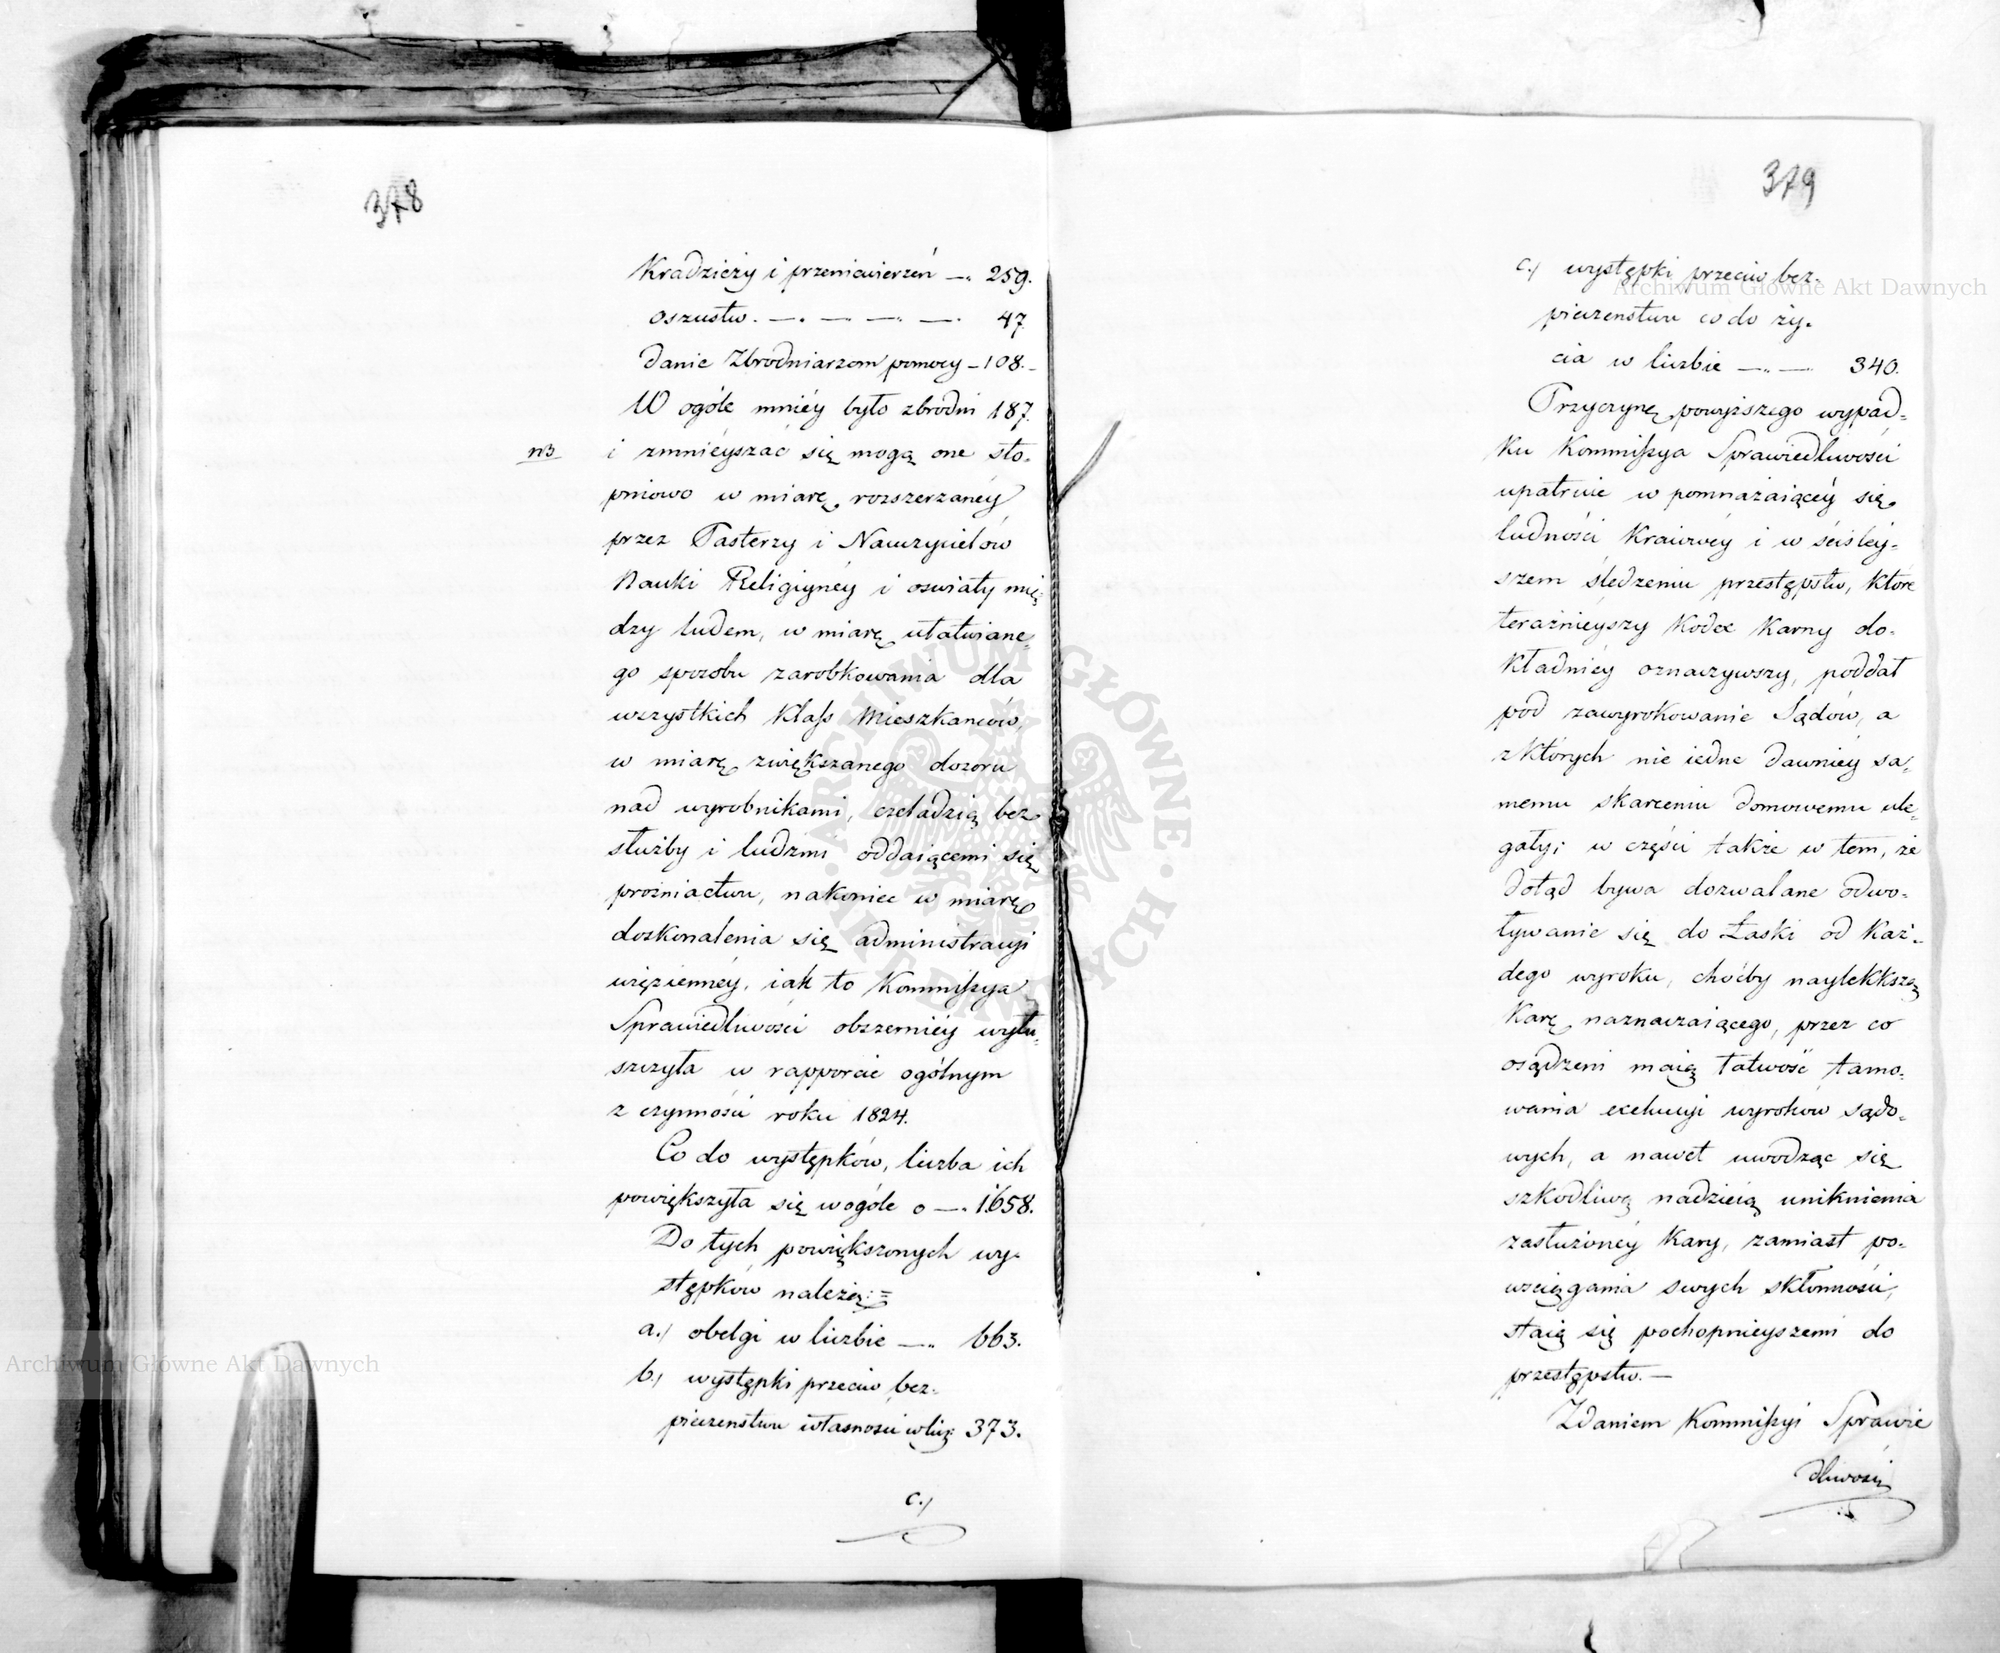 378
Kradzieży i przeniewierzeń —. 259.
oszustw. —. — —. —. 47.
danie Zbrodniarzom pomocy — 108.—
W ogóle mniéy było zbrodni 187.
NB i zmniéyszać się mogą one sto-
pniowo w miarę rozszerzanéy
przez Pasterzy i Nauczycielów
Nauki Religiynéy i oswiaty mię-
dzy ludem, w miarę ułatwiane-
go sposobu zarobkowania dla
wszystkich Klass Mieszkanców,
w miarę zwiększanego dozoru
nad wyrobnikami, czeladzią bez
służby i ludzmi oddaiącemi się
prożniactwu, nakoniec w miarę
doskonalenia się administracyi
więzienney, iak to Kommissya
Sprawiedliwości obszerniéy wyłu-
szczyła w rapporcie ogólnym
z czynności roku 1824.
Co do występków, liczba ich
powiększyła się wogóle o —. 1658.
Do tych powiększonych wy-
stępków należą: =
a./ obelgi w liczbie —. 663.
b./ występki przeciw bez-
pieczenstwu własnosci w licz: 373.
c./
379
c./ występki przeciw bez-
pieczenstwu co do ży-
cia w liczbie —. — 340.
Przyczynę powyższego wypad-
ku Kommissya Sprawiedliwości
upatruie w pomnażaiącéy się
ludności Kraiowéy i w ściśley-
szem śledzeniu przestępstw, które
teraźnieyszy Kodex Karny do-
kładniéy oznaczywszy, poddał
pod zawyrokowanie Sądów, a
z których nie iedne dawniéy sa-
memu skarceniu domowemu ule-
gały; w części także w tem, że
dotąd bywa dozwalane odwo-
ływanie się do Łaski od każ-
dego wyroku, choćby naylekkszą
Karę naznaczaiącego, przez co
osądzeni maią łatwość tamo-
wania exekucyi wyroków sądo-
wych, a nawet uwodząc się
szkodliwą nadzieią uniknienia
zasłużonéy Kary, zamiast po-
wsciągania swych skłonności,
staią się pochopnieyszemi do
przestępstw. —
Zdaniem Kommissyi Sprawie
dliwości
Archiwum Główne Akt Dawnych
Archiwum Główne Akt Dawnych